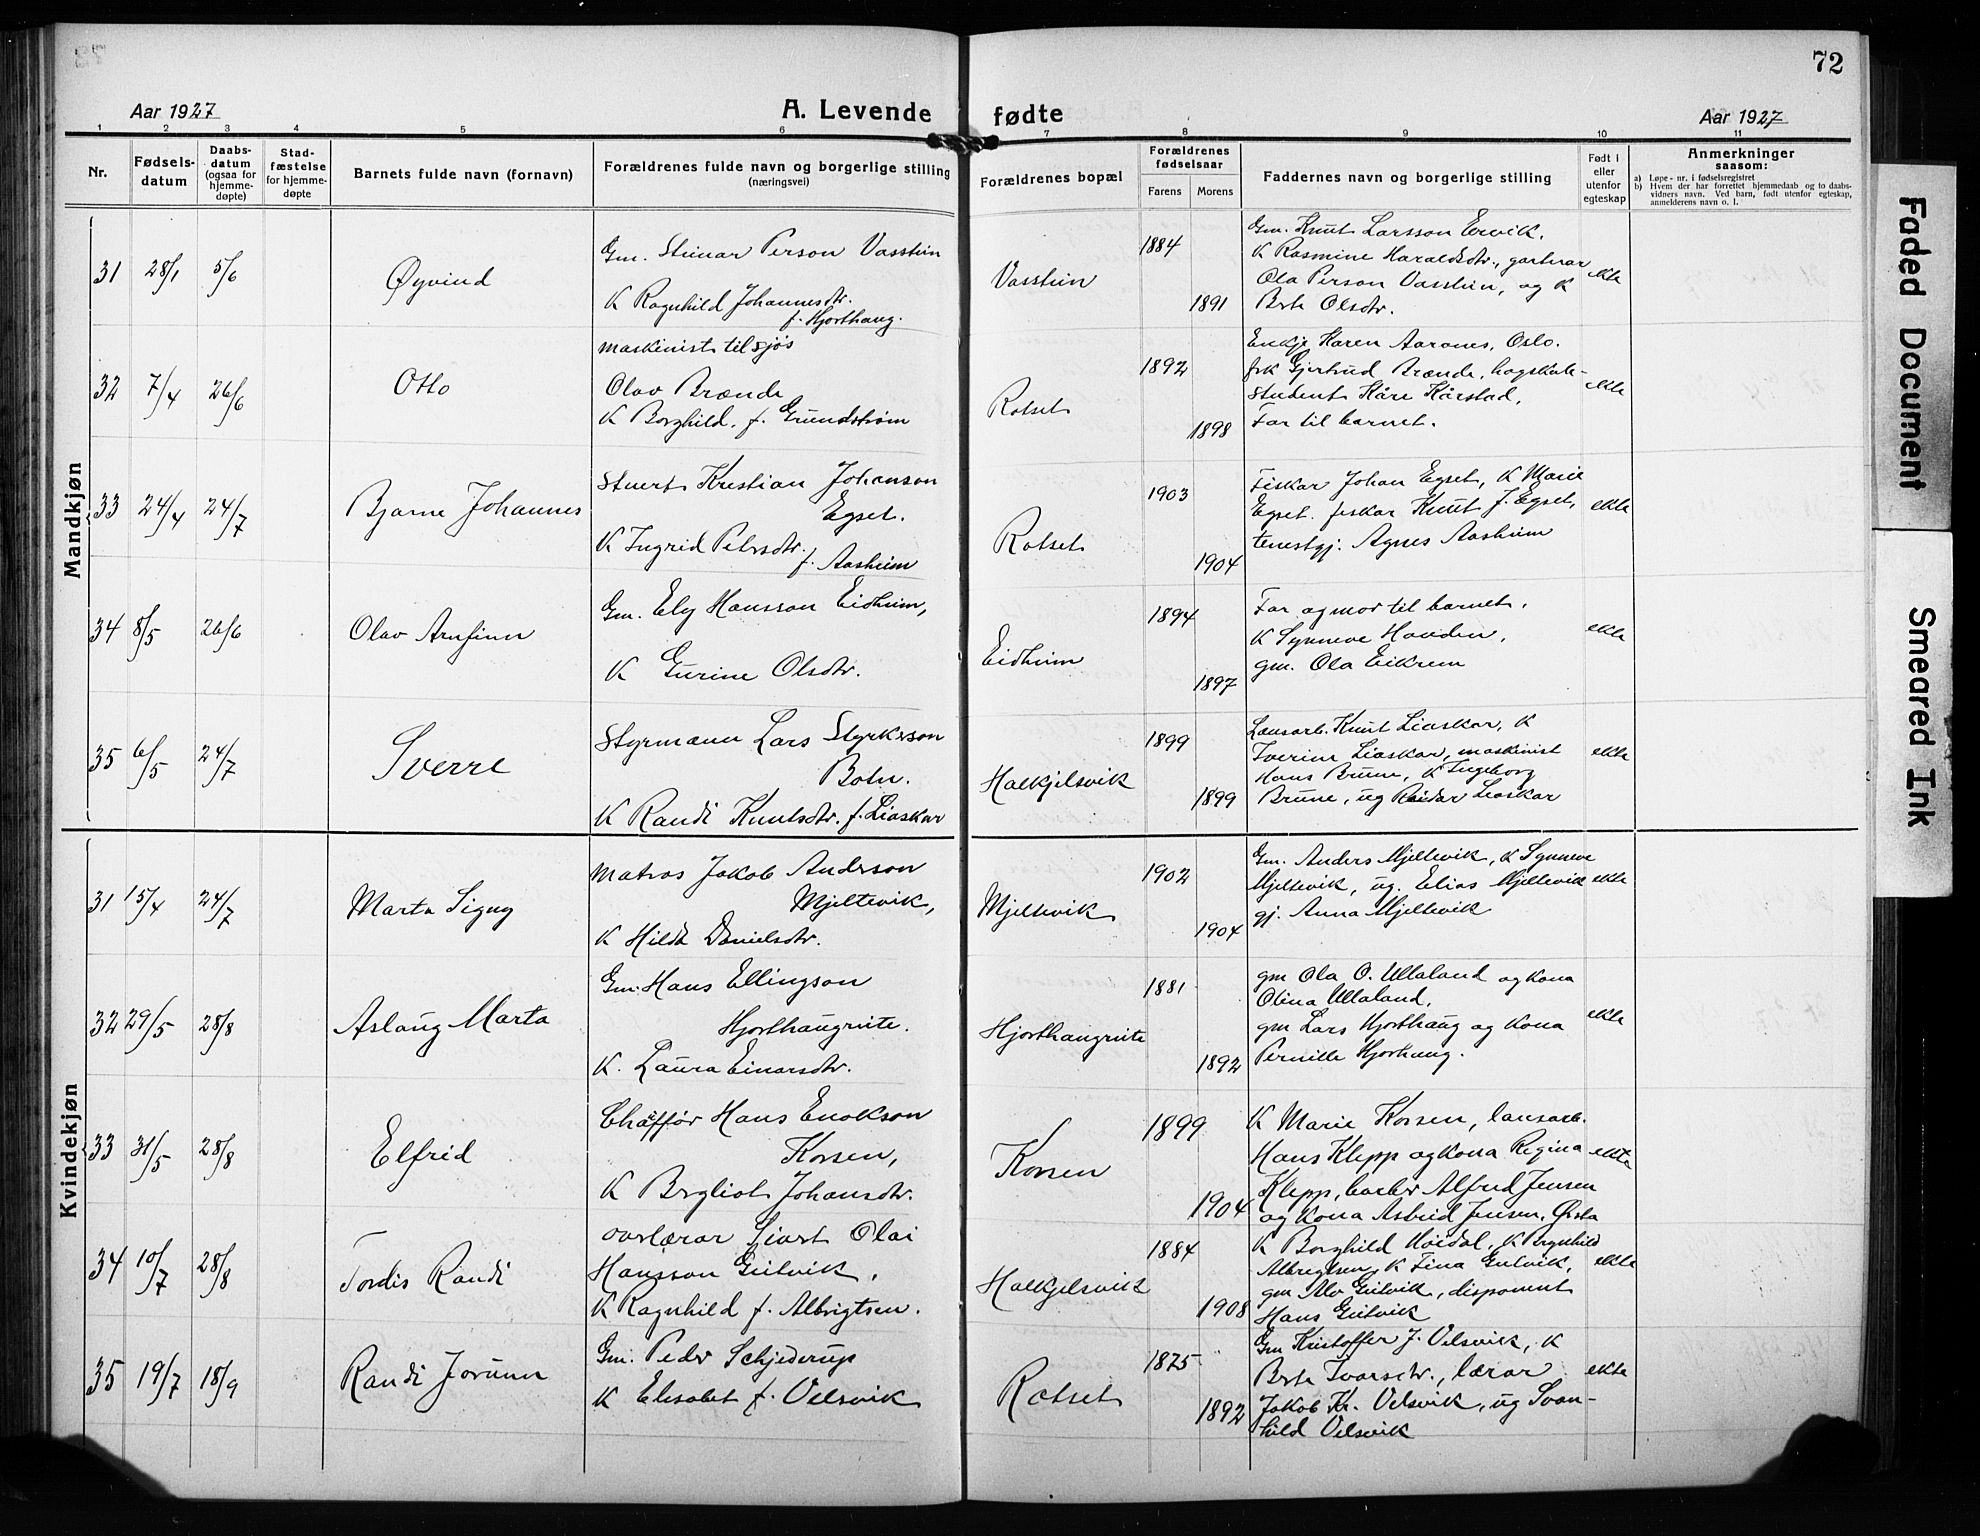 72
Aar 1927
A. Levende
fødte
Aar 1927
1 2 3 4 5 6 7 8 9 10 11
Nr.
Fødsels-
datum
Daabs-
datum
(ogsaa for
hjemme-
døpte)
Stad-
fæstelse
for hjemme-
døpte
Barnets fulde navn (fornavn)
Forældrenes fulde navn og borgerlige stilling
(næringsvei)
Forældrenes bopæl
Forældrenes
fødselsaar
Farens Morens
Faddernes navn og borgerlige stilling
Født i
eller
utenfor
egteskap
Anmerkninger
saasom:
a) Løpe-nr. i fødselsregistret
b) Hvem der har forrettet hjemmedaab og to daabs-
vidners navn. Ved barn, født utenfor egteskap,
anmelderens navn o. l.
Mandkjøn
31 28/1 5/6
Øyvind
Gm. Steinar Person Vasstein
K Ragnhild Johannesdtr.
f. Hjorthaug.
Vasstein
1884
1891
Gm. Knut Larsson Ervik,
K Rasmine Haraldsdtr., gartnar
Ola Person Vasstein, og K
Brte Olsdtr.
ekte
32 7/4 26/6
Otto
maskinist til sjøs
Olav Brænde
K Borghild, f. Grundstrøm
Rotset
1892
1898
Enkje Karen Aarones, Oslo.
frk Gjertrud Brænde, høgskule-
student Kåre Kårstad,
Far til barnet.
ekte
33 24/4 24/7
Bjarne Johannes
Stuert Kristian Johanson
Egset.
K Ingrid Petersdtr.
f. Aasheim
Rotset
1903
1904
Fiskar Johan Egset, K Marie
Egset. fiskar Knut J. Egset,
tenestgj. Agnes Aasheim
ekte
34 8/5 26/6
Olav Arnfinn
Gm. Ely Hansson Eidheim,
K Gurine Olsdtr.
Eidheim
1894
1897
Far og mor til barnet,
K Synneve Hovden,
gm. Ola Eikrem
ekte
35 6/5 24/7
Sverre
Styrmann Lars Styrkson
Botn.
K Randi Knutsdtr. f. Liaskar
Halkjelsvik
1899
1899
Lausarb. Knut Liaskar, K
Iverine Liaskar, maskinist
Hans Brune, K Ingeborg
Brune, ug Reidar Liaskar
ekte
Kvindekjøn
31 15/4 24/7
Marta Signy
Matros Jakob Anderson
Mjeltevik,
K Hilda Danielsdtr.
Mjeltevik
1902
1904
Gm. Anders Mjeltevik, K Synneve
Mjeltevik, ug. Elias Mjeltevik
gj. Anna Mjeltevik
ekte
32 29/5 28/8
Aslaug Marta
Gm. Hans Ellingson
Hjorthaugreite.
K. Laura Einarsdtr.
Hjorthaugreite
1881
1892
gm Ola O. Ullaland og kona
Olina Ullaland,
gm Lars Hjorthaug og kona
Pernille Hjorthaug.
ekte
33 31/5 28/8
Elfrid
Chaffør Hans Enokson
Korsen,
K Bergliot Johansdtr.
Korsen
1899
1904
K Marie Korsen, lausarb.
Hans Klepp og kona Regina
Klepp, barber Alfred Jensen
og kona Astrid Jensen, Ørsta
ekte
34 10/7 28/8
Tordis Randi
overlærar Sivert Olai
Hansson Geitvik,
K Ragnhild f. Albrigtsen.
Halkjelsvik
1884
1908
K Borghild Høidal, K Bergnhild
Albregtsen, K Fina Geitvik,
gm Alv Geitvik, disponent
Hans Geitvik
ekte
35 19/7 18/9
Randi Jorunn
Gm. Peder Schjederup
K Elisabet f. Velsvik
Rotset
1875
1892
Gm Kristoffer J. Velsvik, K
Brte Ivarsdtr., lærar
Jakob Kr. Velsvik, ug Svan-
hild Velsvik
ekte
Faded Document
Smeared Ink